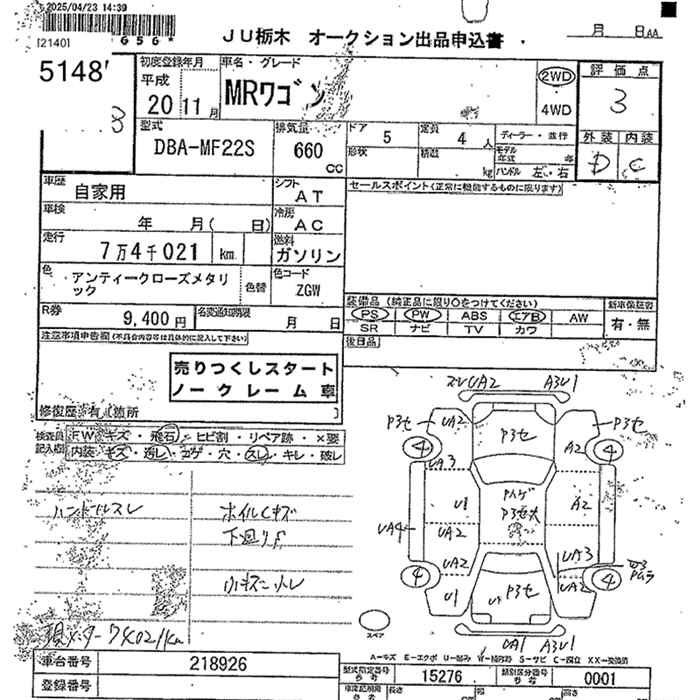 2025/04/23 14:39
[2140]
656*
JU栃木 オークション出品申込書
月 日AA
5148
初度登録年月
平成
20 11月
車名・グレード
MRワゴン
2WD
4WD
評価点
3
外装 内装
D C
型式
DBA-MF22S
排気量
660
CC
ドア
5
定員
4人
形状
積載
kg
ディーラー・並行
モデル年式 年
ハンドル 左・右
車歴
自家用
シフト
AT
セールスポイント(正常に機能するものに限ります)
車検
年 月( 日)
冷房
AC
走行
7万4千021 km
燃料
ガソリン
色
アンティークローズメタリック
色替
色コード
ZGW
R券
9,400円
名変通知期限
月 日
装備品(純正品に限り○をつけてください)
新車保証書
PS PW ABS エアB AW
SR ナビ TV カワ
有・無
後日品
注意事項申告欄(不具合内容等は具体的に記入して下さい)
売りつくしスタート
ノークレーム車
修復歴 有( 箇所 )
検査員記入欄
FW キズ・飛石・ヒビ割・リペア跡・×要
内装 キズ・汚レ・コゲ・穴・スレ・キレ・破レ
ハンドルスレ
ホイルCキズ
下廻りS
小キズ
UA2 A3U1
P3セ UA2 P3セ P3セ
4 A2 4
UA3
U1 A2
P3セ大
UA4 UA2
UA2 UA3
4 P3セ 4
U1 UA2
UA1 A3U1
スペア
A-キズ E-エクボ U-凹み W-補修跡 S-サビ C-腐食 XX-交換済
車台番号
218926
登録番号
型式指定番号
参考
15276
類別区分番号
参考
0001
長さ
幅
高さ